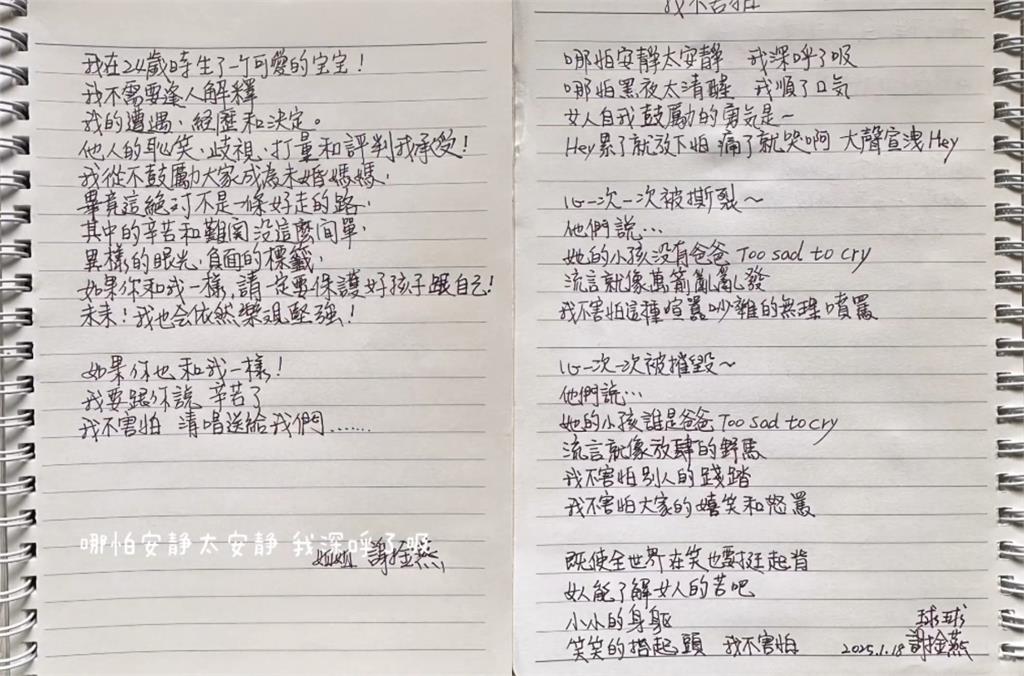 我在24歲時生了一个可愛的宝宝！
我不需要逢人解釋
我的遭遇、經歷和決定。
他人的恥笑、歧視、打量和評判我承受！
我從不鼓勵大家成為未婚媽媽，
畢竟這絕对不是一條好走的路，
其中的辛苦和難関沒這麼简單，
異樣的眼光，負面的標籤，
如果你和我一樣，請一定要保護好孩子跟自己！
未來！我也会依然樂观堅強！
如果你也和我一樣！
我要跟你說 辛苦了
我不害怕 清唱送給我們.......
哪怕安静太安静 我深呼了吸
姐姐 謝金燕
我不害怕
哪怕安静太安静 我深呼了吸
哪怕黑夜太清醒 我順了口氣
女人自我鼓勵的勇氣是～
Hey累了就放下怕 痛了就哭啊 大聲宣洩Hey
心一次一次被撕裂～
他們說…
她的小孩没有爸爸 Too sad to cry
流言就像萬箭亂亂發
我不害怕這種喧囂吵雜的無理噴罵
心一次一次被摧毀～
他們說…
她的小孩誰是爸爸 Too sad to cry
流言就像放肆的野馬
我不害怕别人的踐踏
我不害怕大家的嬉笑和怒罵
既使全世界在笑也要挺起背
女人能了解女人的苦吧
小小的身軀
笑笑的抬起頭 我不害怕
球球
2025.1.18 謝金燕